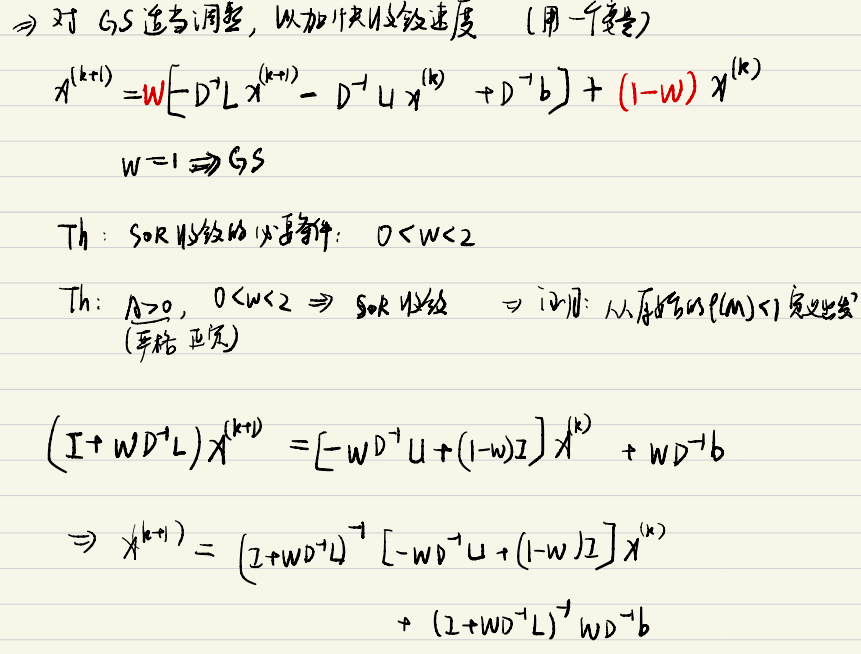 ⇒ 对 GS 适当调整, 以加快收敛速度 (用一个变量)
x^{(k+1)} = w[-D^{-1}Lx^{(k+1)} - D^{-1}Ux^{(k)} + D^{-1}b] + (1-w)x^{(k)}
w=1 ⇒ GS
Th: SOR 收敛的必要条件: 0<w<2
Th: A>0, 0<w<2 ⇒ SOR 收敛 ⇒ 证明: 从原始的 ρ(M)<1 定义出发
(严格正定)
(I+wD^{-1}L)x^{(k+1)} = [-wD^{-1}U+(1-w)I]x^{(k)} + wD^{-1}b
⇒ x^{(k+1)} = (I+wD^{-1}L)^{-1}[-wD^{-1}U+(1-w)I]x^{(k)}
+ (I+wD^{-1}L)^{-1}wD^{-1}b